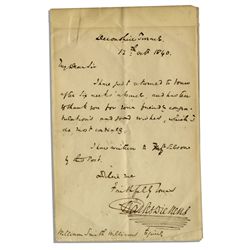 Devonshire Terrace.
12th Oct 1840.
My Dear Sir
I have just returned to town
after six weeks' absence, and hasten
to thank you for your friendly congra-
tulations and good wishes, which I
do most cordially.
I have written to by
Post.
Believe me
Faithfully Yours
Charles Dickens
William Smith Williams Esquire